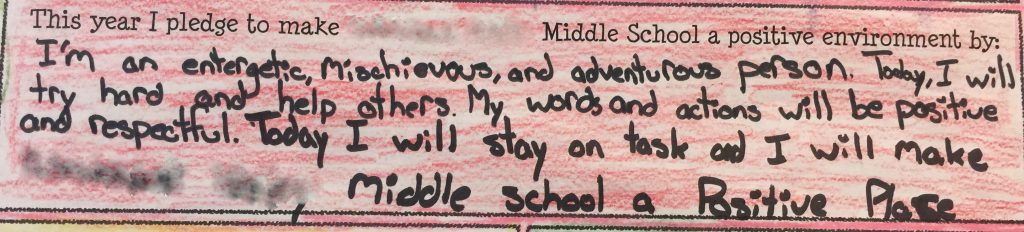 This year I pledge to make Middle School a positive environment by:
I'm an entergetic, mischievous, and adventurous person. Today, I will
try hard and help others. My words and actions will be positive
and respectful. Today I will stay on task and I will make
, Middle school a Positive Place